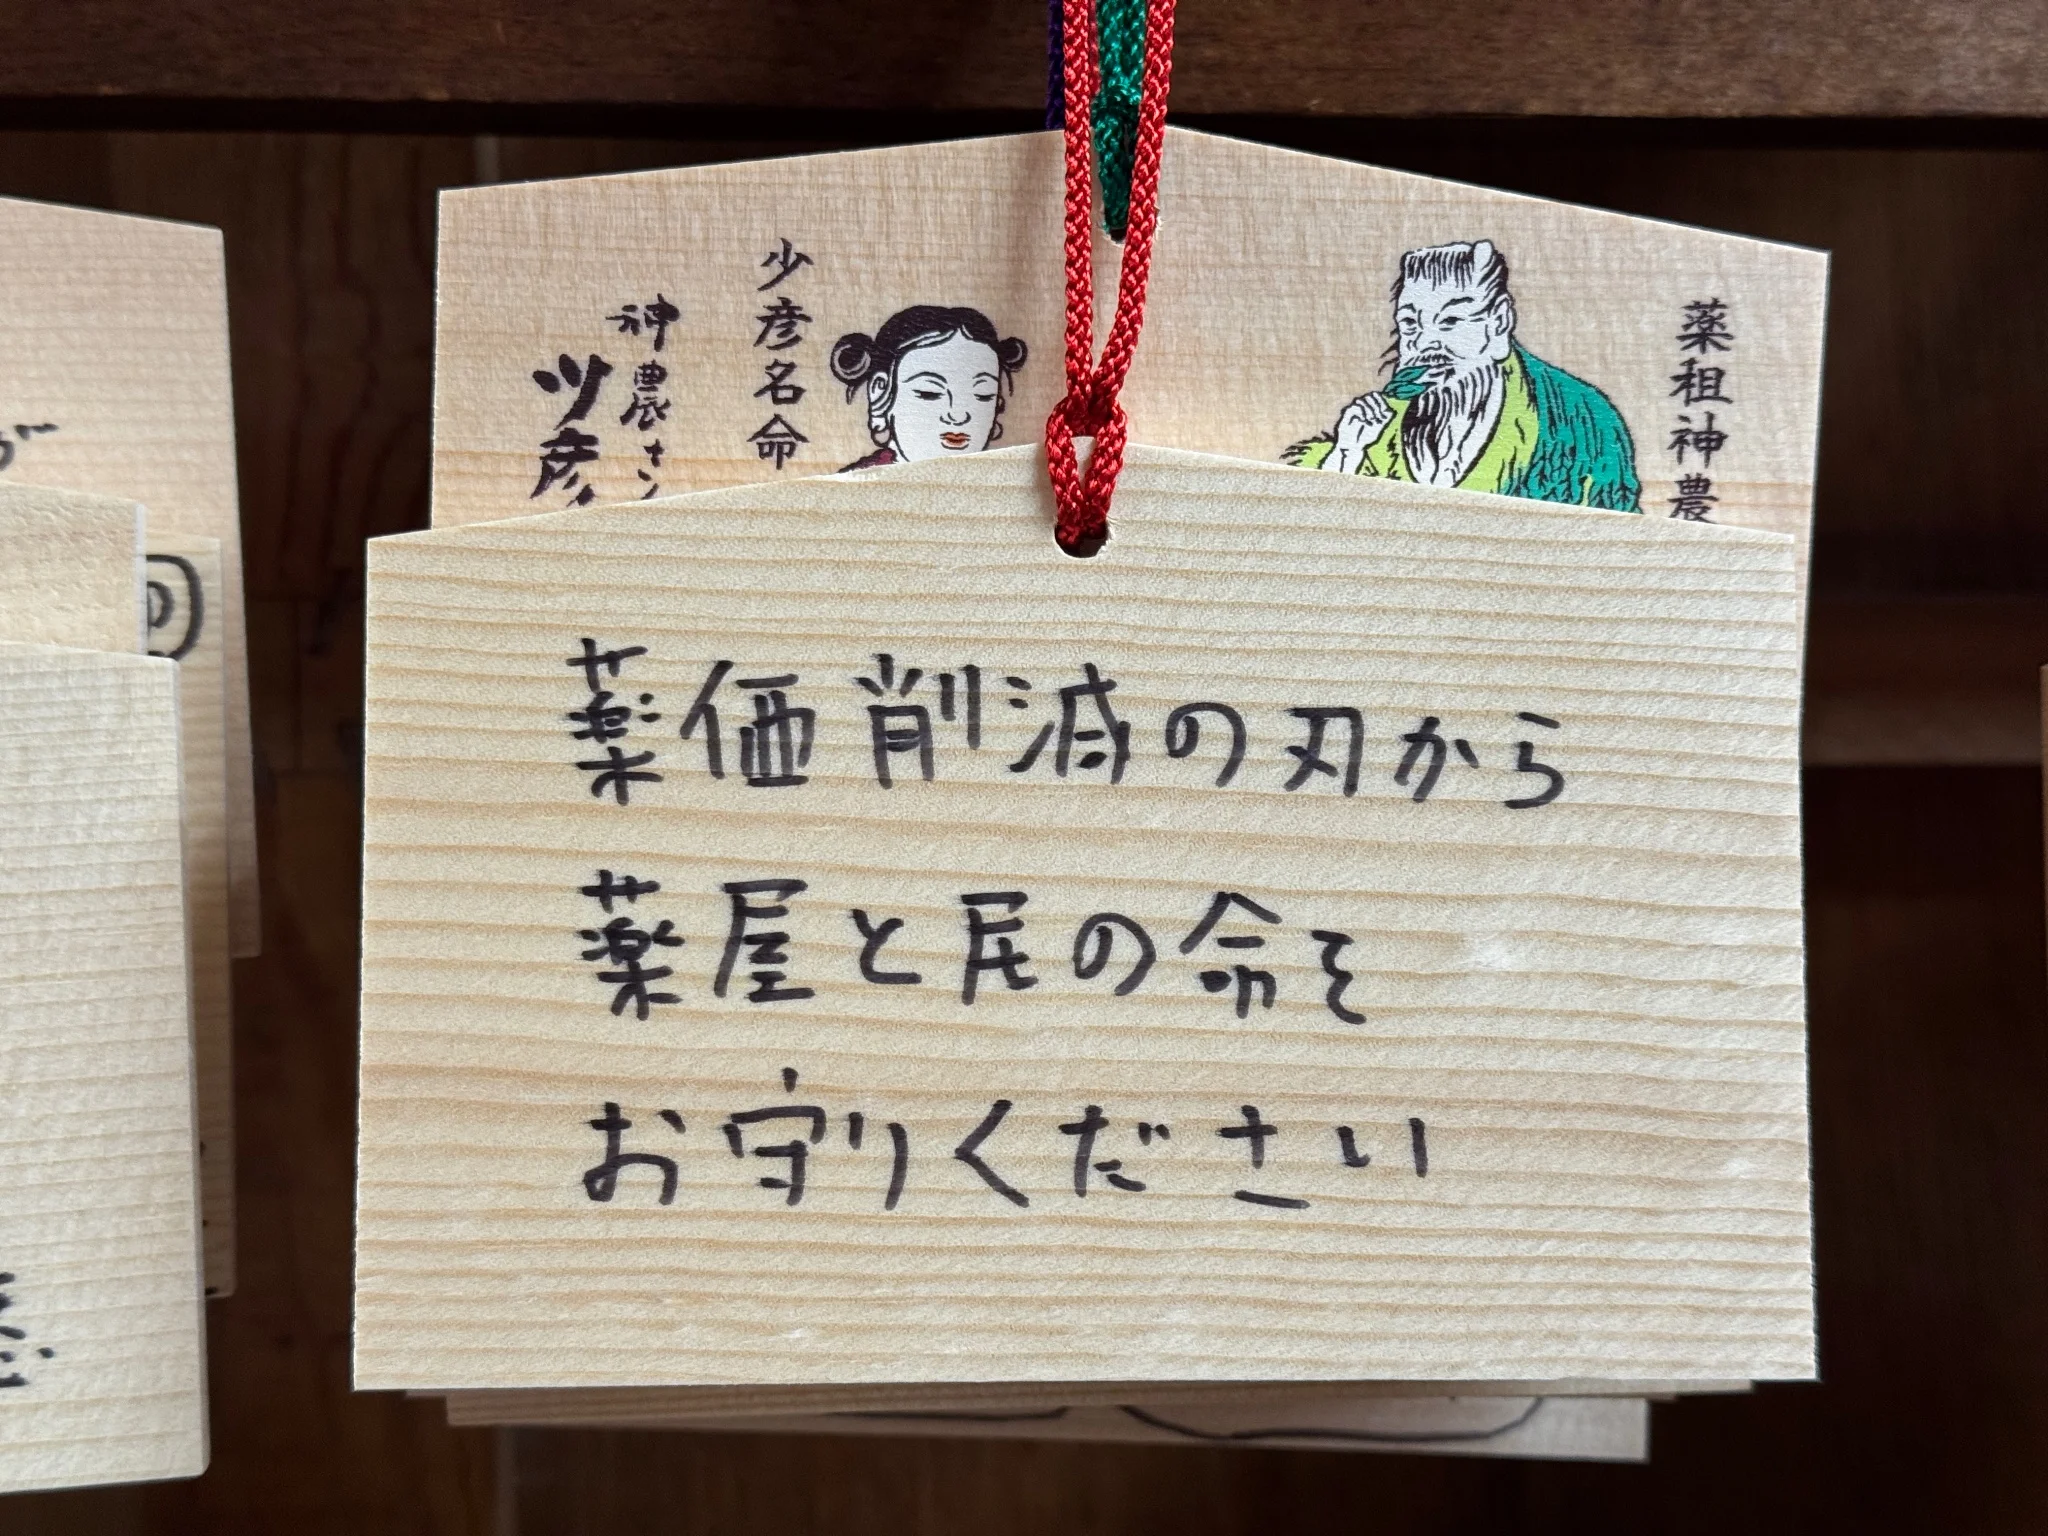 薬価削減の刃から
薬屋と民の命を
お守りください
薬祖神農
少彦名命
神農サン
ツ彦